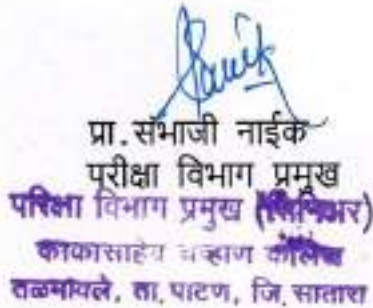 प्रा.संभाजी नाईक
परीक्षा विभाग प्रमुख
परिक्षा विभाग प्रमुख (सिनिअर)
काकासाहेब चव्हाण कॉलेज
तळमावले, ता. पाटण, जि. सातारा